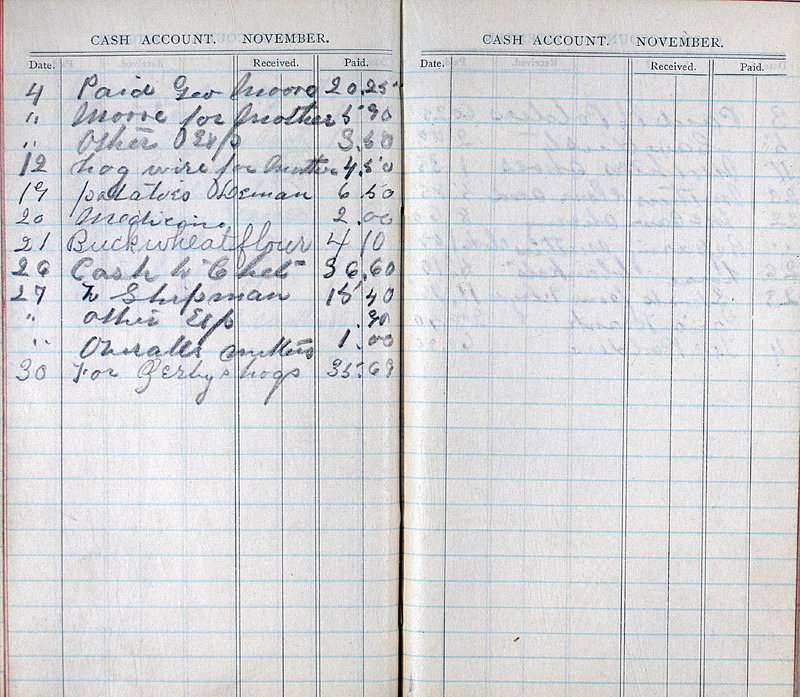 CASH ACCOUNT. NOVEMBER.
Date. Received. Paid.
4 Paid Geo Moore 20.25
" Moore for Mother 5.90
" Other Exp 3.50
12 hog wire for 4.50
19 potatoes 6.50
20 Medicine 2.00
21 Buckwheat flour 4 10
26 Cash to Chet 36.60
27 Shipman 15.40
" other Exp .30
" Overalls mittens 1.00
30 For hogs 35.69
CASH ACCOUNT. NOVEMBER.
Date. Received. Paid.